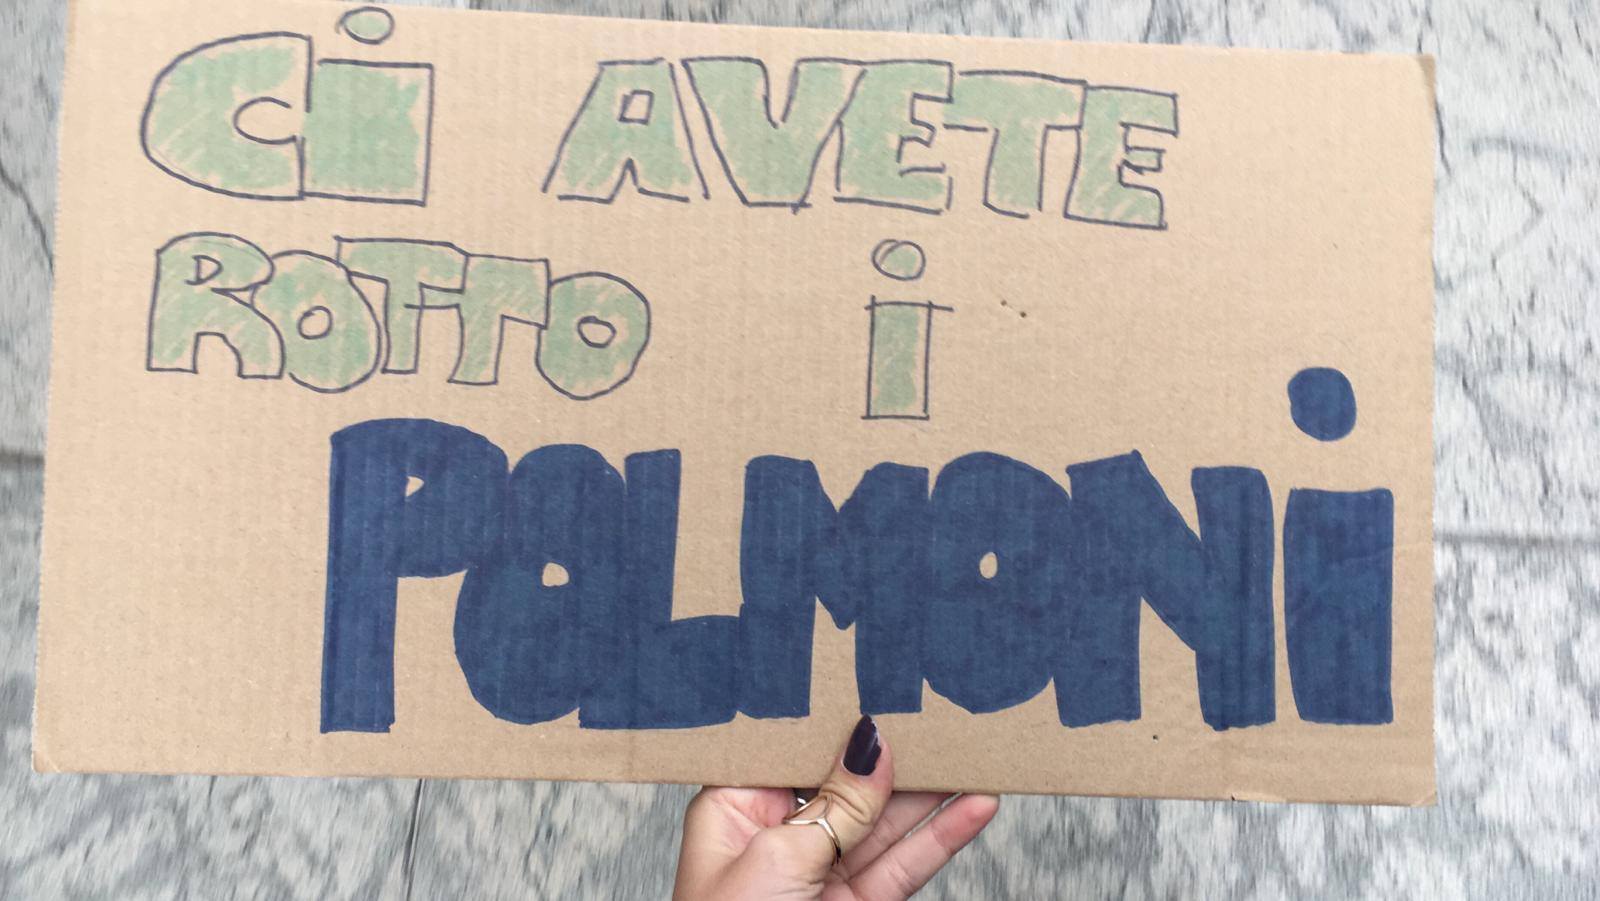 Ci AVETE
ROTTO i
POLMONi